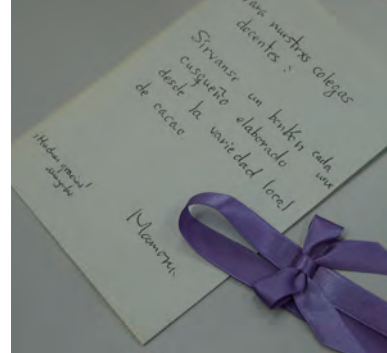 Para nuestrxs colegas
docentes:
Sírvanse un bonbón cada unx
cusqueño elaborado
desde la variedad local
de cacao
¡Muchas gracias!
Mamoni.